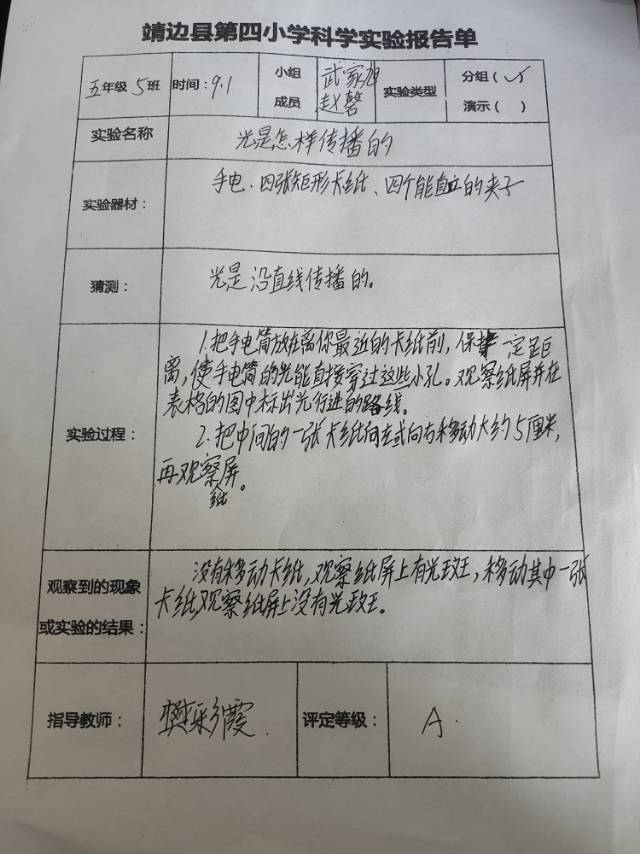 靖边县第四小学科学实验报告单
五年级 5班 时间：9.1 小组成员 武家旭 赵磬 实验类型 分组（✓） 演示（ ）
实验名称 光是怎样传播的
实验器材： 手电、四张矩形卡纸、四个能直立的夹子
猜测： 光是沿直线传播的。
实验过程：
1.把手电筒放在离你最近的卡纸前，保持一定距
离，使手电筒的光能直接穿过这些小孔。观察纸屏并在
表格的图中标出光行进的路线。
2.把中间的一张卡纸向左或向右移动大约5厘米，
再观察纸屏。
观察到的现象
或实验的结果：
没有移动卡纸，观察纸屏上有光斑，移动其中一张
卡纸，观察纸屏上没有光斑。
指导教师： 樊彩霞 评定等级： A.